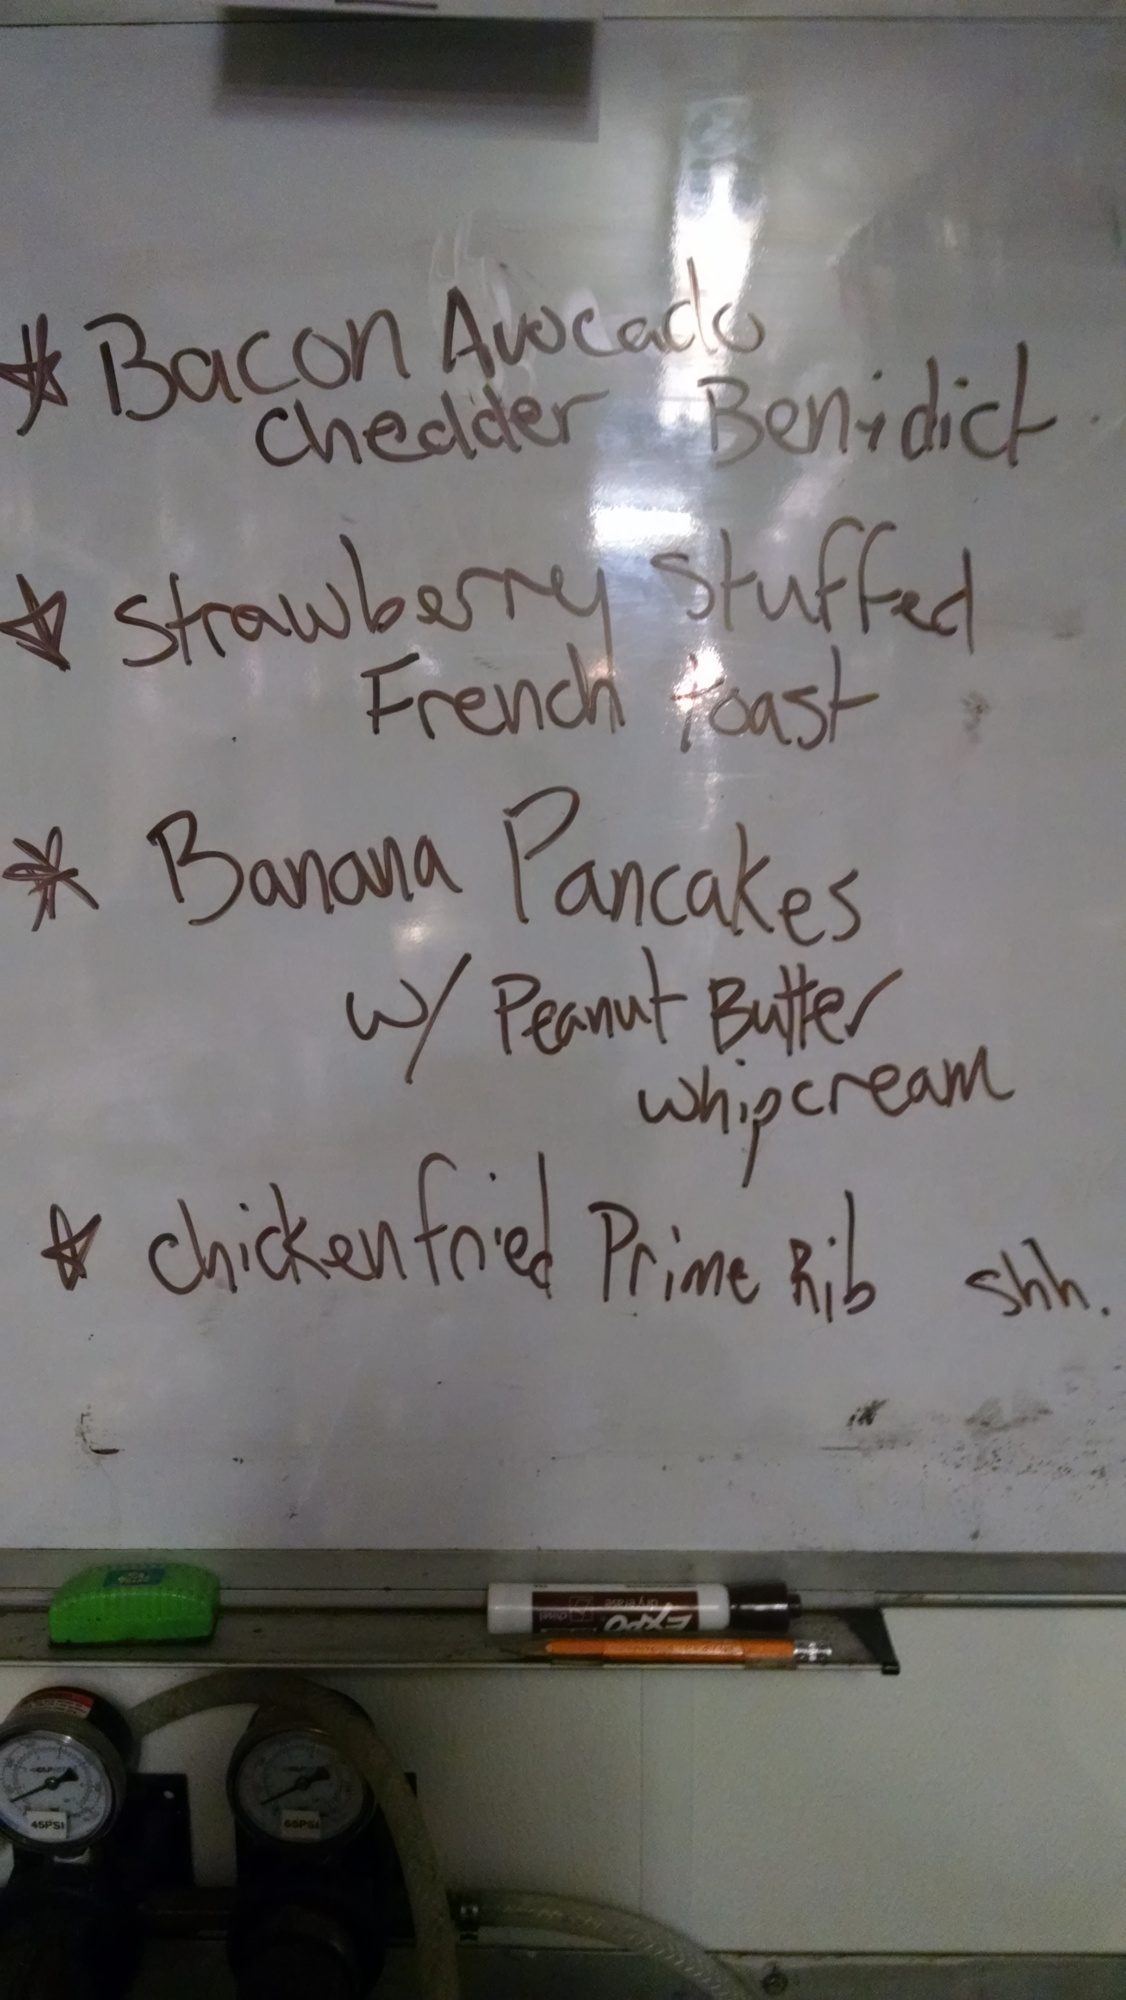 Bacon Avocado
Chedder Benidict
Strawberry Stuffed
French toast
Banana Pancakes
w/ Peanut Butter
whipcream
chicken fried Prime Rib shh.
EXPO
dry erase
chisel
45PSI
65PSI